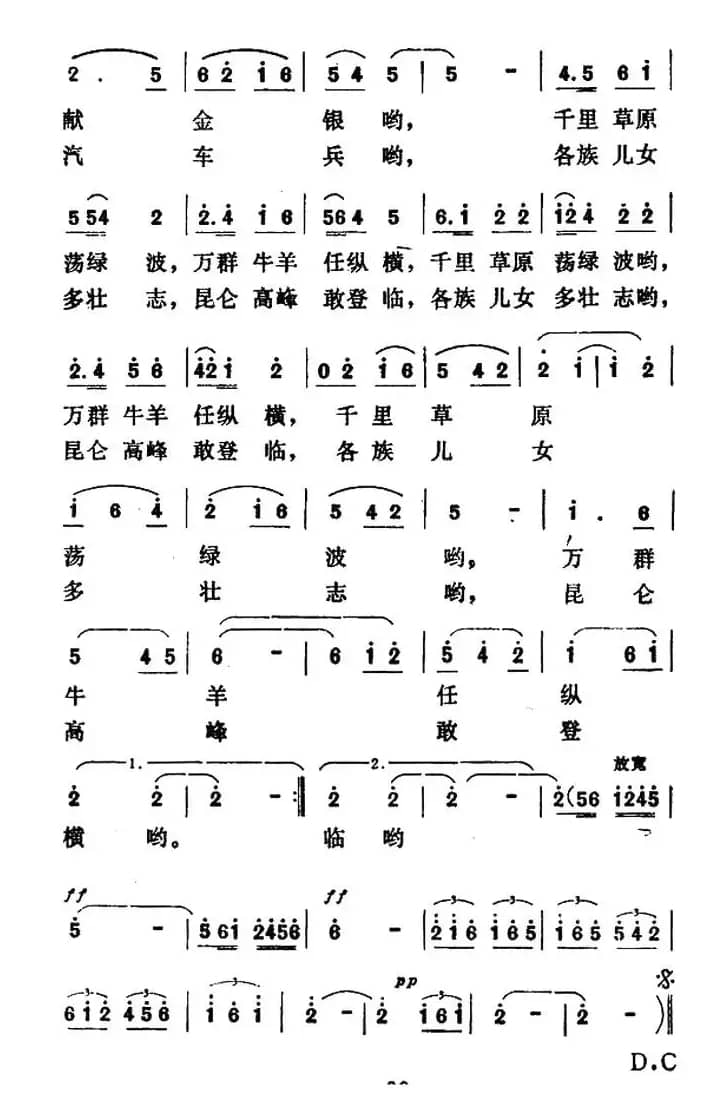 2 . 5 | 6 2 i 6 | 5 4 5 | 5 - | 4.5 6 i |
献 金 银 哟， 千里 草原
汽 车 兵 哟， 各族 儿女
5 54 2 | 2.4 i 6 | 564 5 | 6.i 2 2 | i24 2 2 |
荡绿 波，万群 牛羊 任纵 横，千里 草原 荡绿 波哟，
多壮 志，昆仑 高峰 敢登 临，各族 儿女 多壮 志哟，
2.4 5 6 | 42i 2 | 0 2 i 6 | 5 4 2 | 2 i | i 2 |
万群 牛羊 任纵 横， 千 里 草 原
昆仑 高峰 敢登 临， 各 族 儿 女
i 6 4 | 2 i 6 | 5 4 2 | 5 - | i . 6 |
荡 绿 波 哟， 万 群
多 壮 志 哟， 昆 仑
5 4 5 | 6 - | 6 i 2 | 5 4 2 | i 6 i |
牛 羊 任 纵
高 峰 敢 登
1. 2. 放宽
2 2 | 2 - :| 2 2 | 2 - | 2 (56 i245 |
横 哟。 临 哟
ff ff
5 - | 5 6i 2456 | 6 - | 2i6 i65 | i65 542 |
3 3 3 3
3 3 3 pp 3
6i2 456 | i 6 i | 2 - | 2 i6i | 2 - | 2 - )‖
D.C